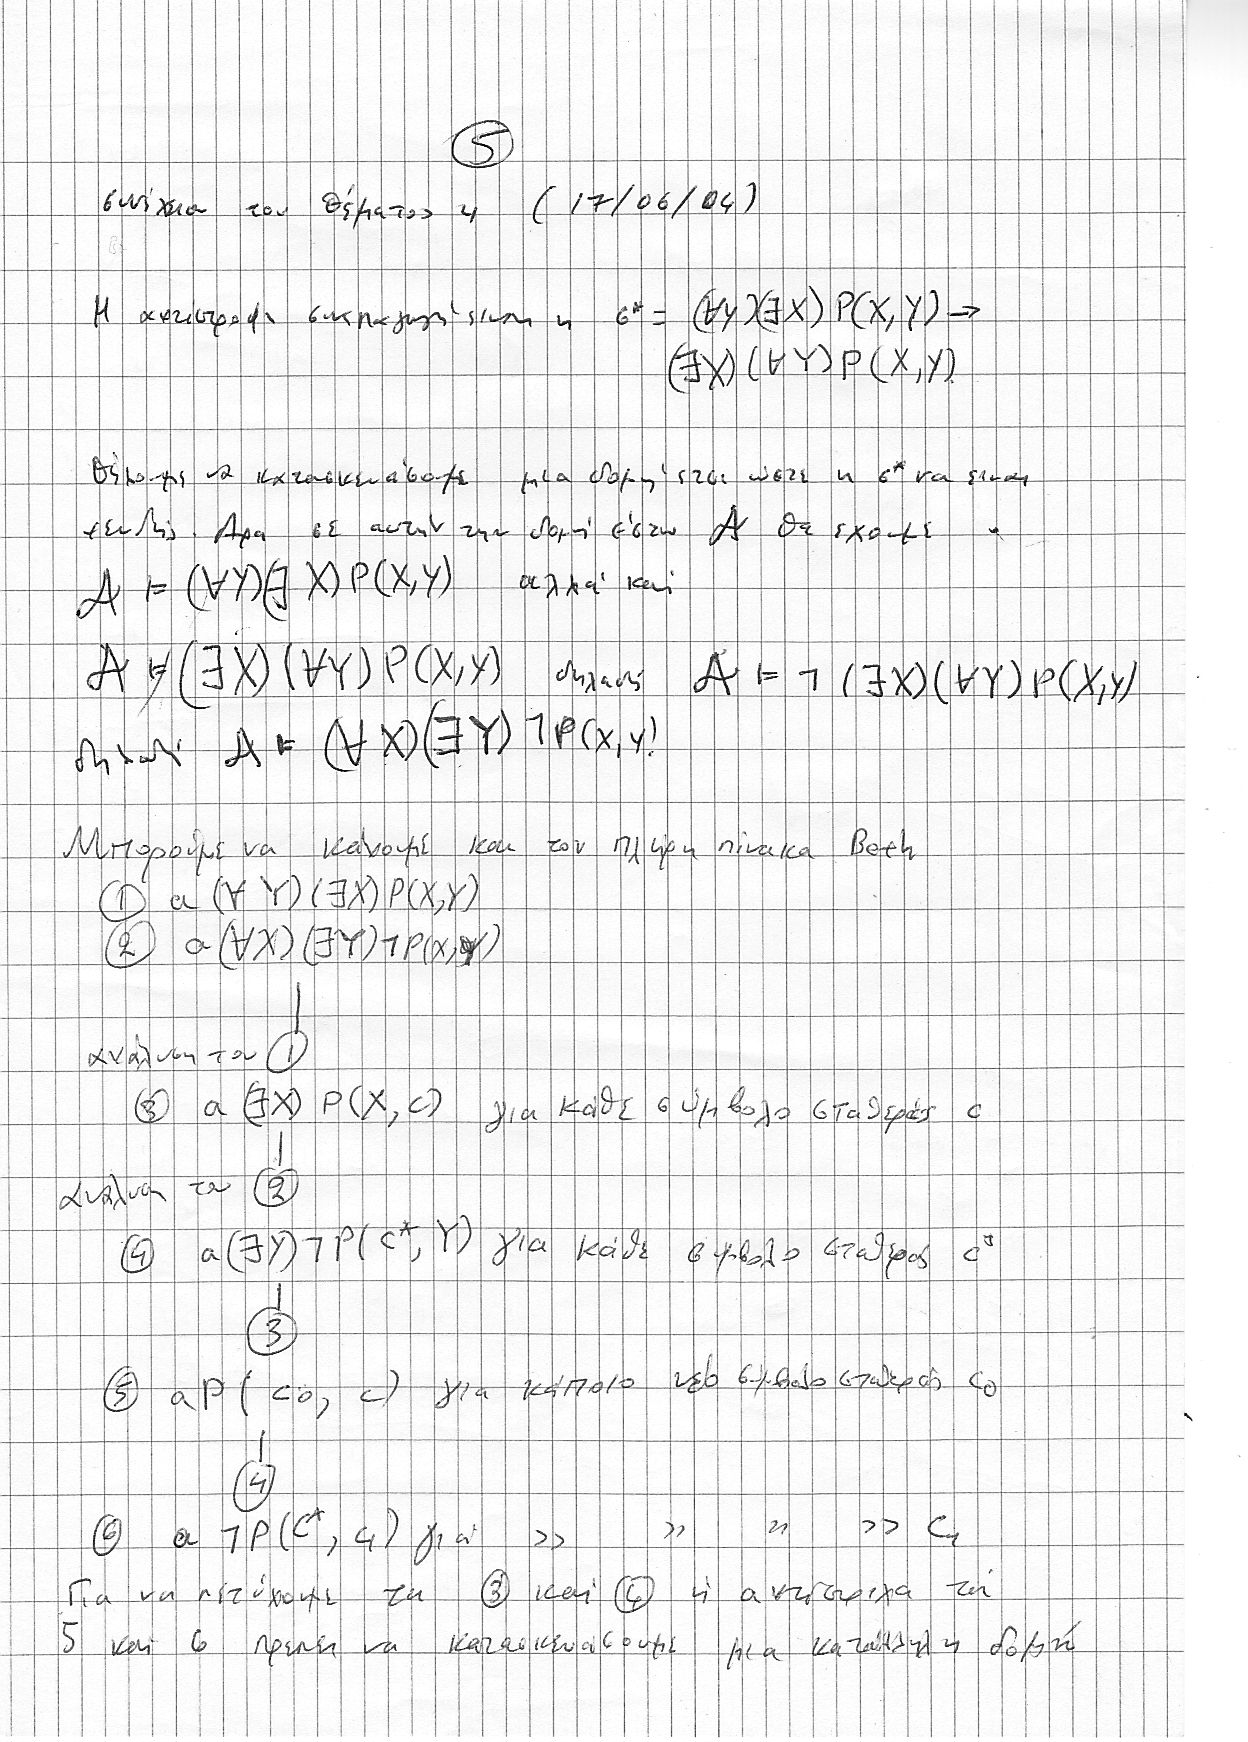 5
συνέχεια του θέματος 4 (17/06/04)
Η αντίστροφη συνεπαγωγή είναι η σ* = (∀Y)(∃X) P(X,Y) →
(∃X)(∀Y) P(X,Y)
Θέλουμε να κατασκευάσουμε μια δομή έτσι ώστε η σ* να είναι
ψευδής. Άρα σε αυτήν την δομή έστω A θα έχουμε
A ⊨ (∀Y)(∃X) P(X,Y) αλλά και
A ⊭ (∃X)(∀Y) P(X,Y) δηλαδή A ⊨ ¬(∃X)(∀Y) P(X,Y)
δηλαδή A ⊨ (∀X)(∃Y) ¬P(X,Y)
Μπορούμε να κάνουμε και τον πλήρη πίνακα Beth
① a (∀Y)(∃X) P(X,Y)
② a (∀X)(∃Y) ¬P(X,Y)
ανάλυση του ①
③ a (∃X) P(X,c) για κάθε σύμβολο σταθεράς c
ανάλυση του ②
④ a (∃Y) ¬P(c*,Y) για κάθε σύμβολο σταθεράς c*
③
⑤ a P(c0, c) για κάποιο νέο σύμβολο σταθεράς c0
④
⑥ a ¬P(c*, c1) για >> >> >> >> c1
Για να πετύχουμε τα ③ και ④ ή αντίστοιχα τα
5 και 6 πρέπει να κατασκευάσουμε μια κατάλληλη δομή